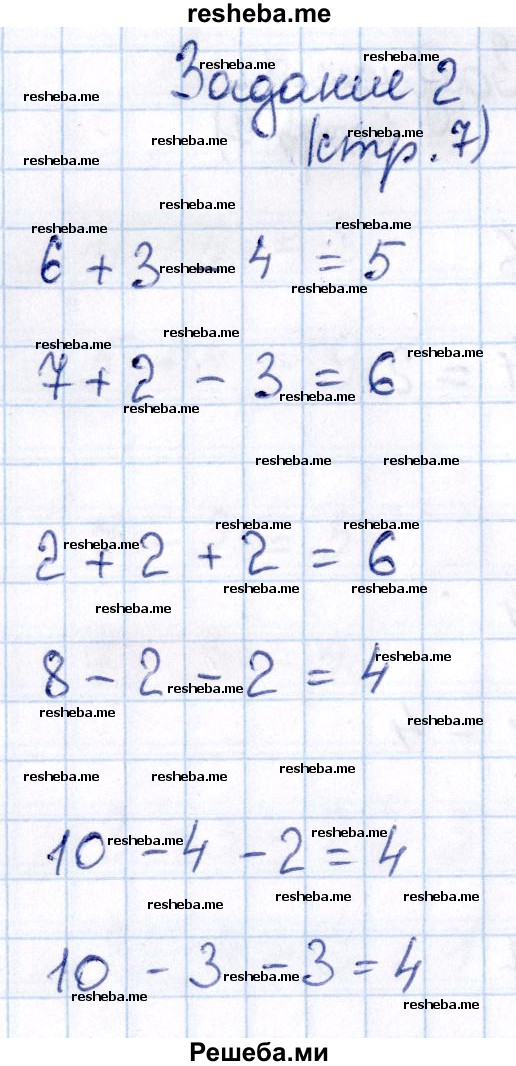 resheba.me
Задание 2
(стр. 7)
6 + 3 - 4 = 5
7 + 2 - 3 = 6
2 + 2 + 2 = 6
8 - 2 - 2 = 4
10 - 4 - 2 = 4
10 - 3 - 3 = 4
Решеба.ми